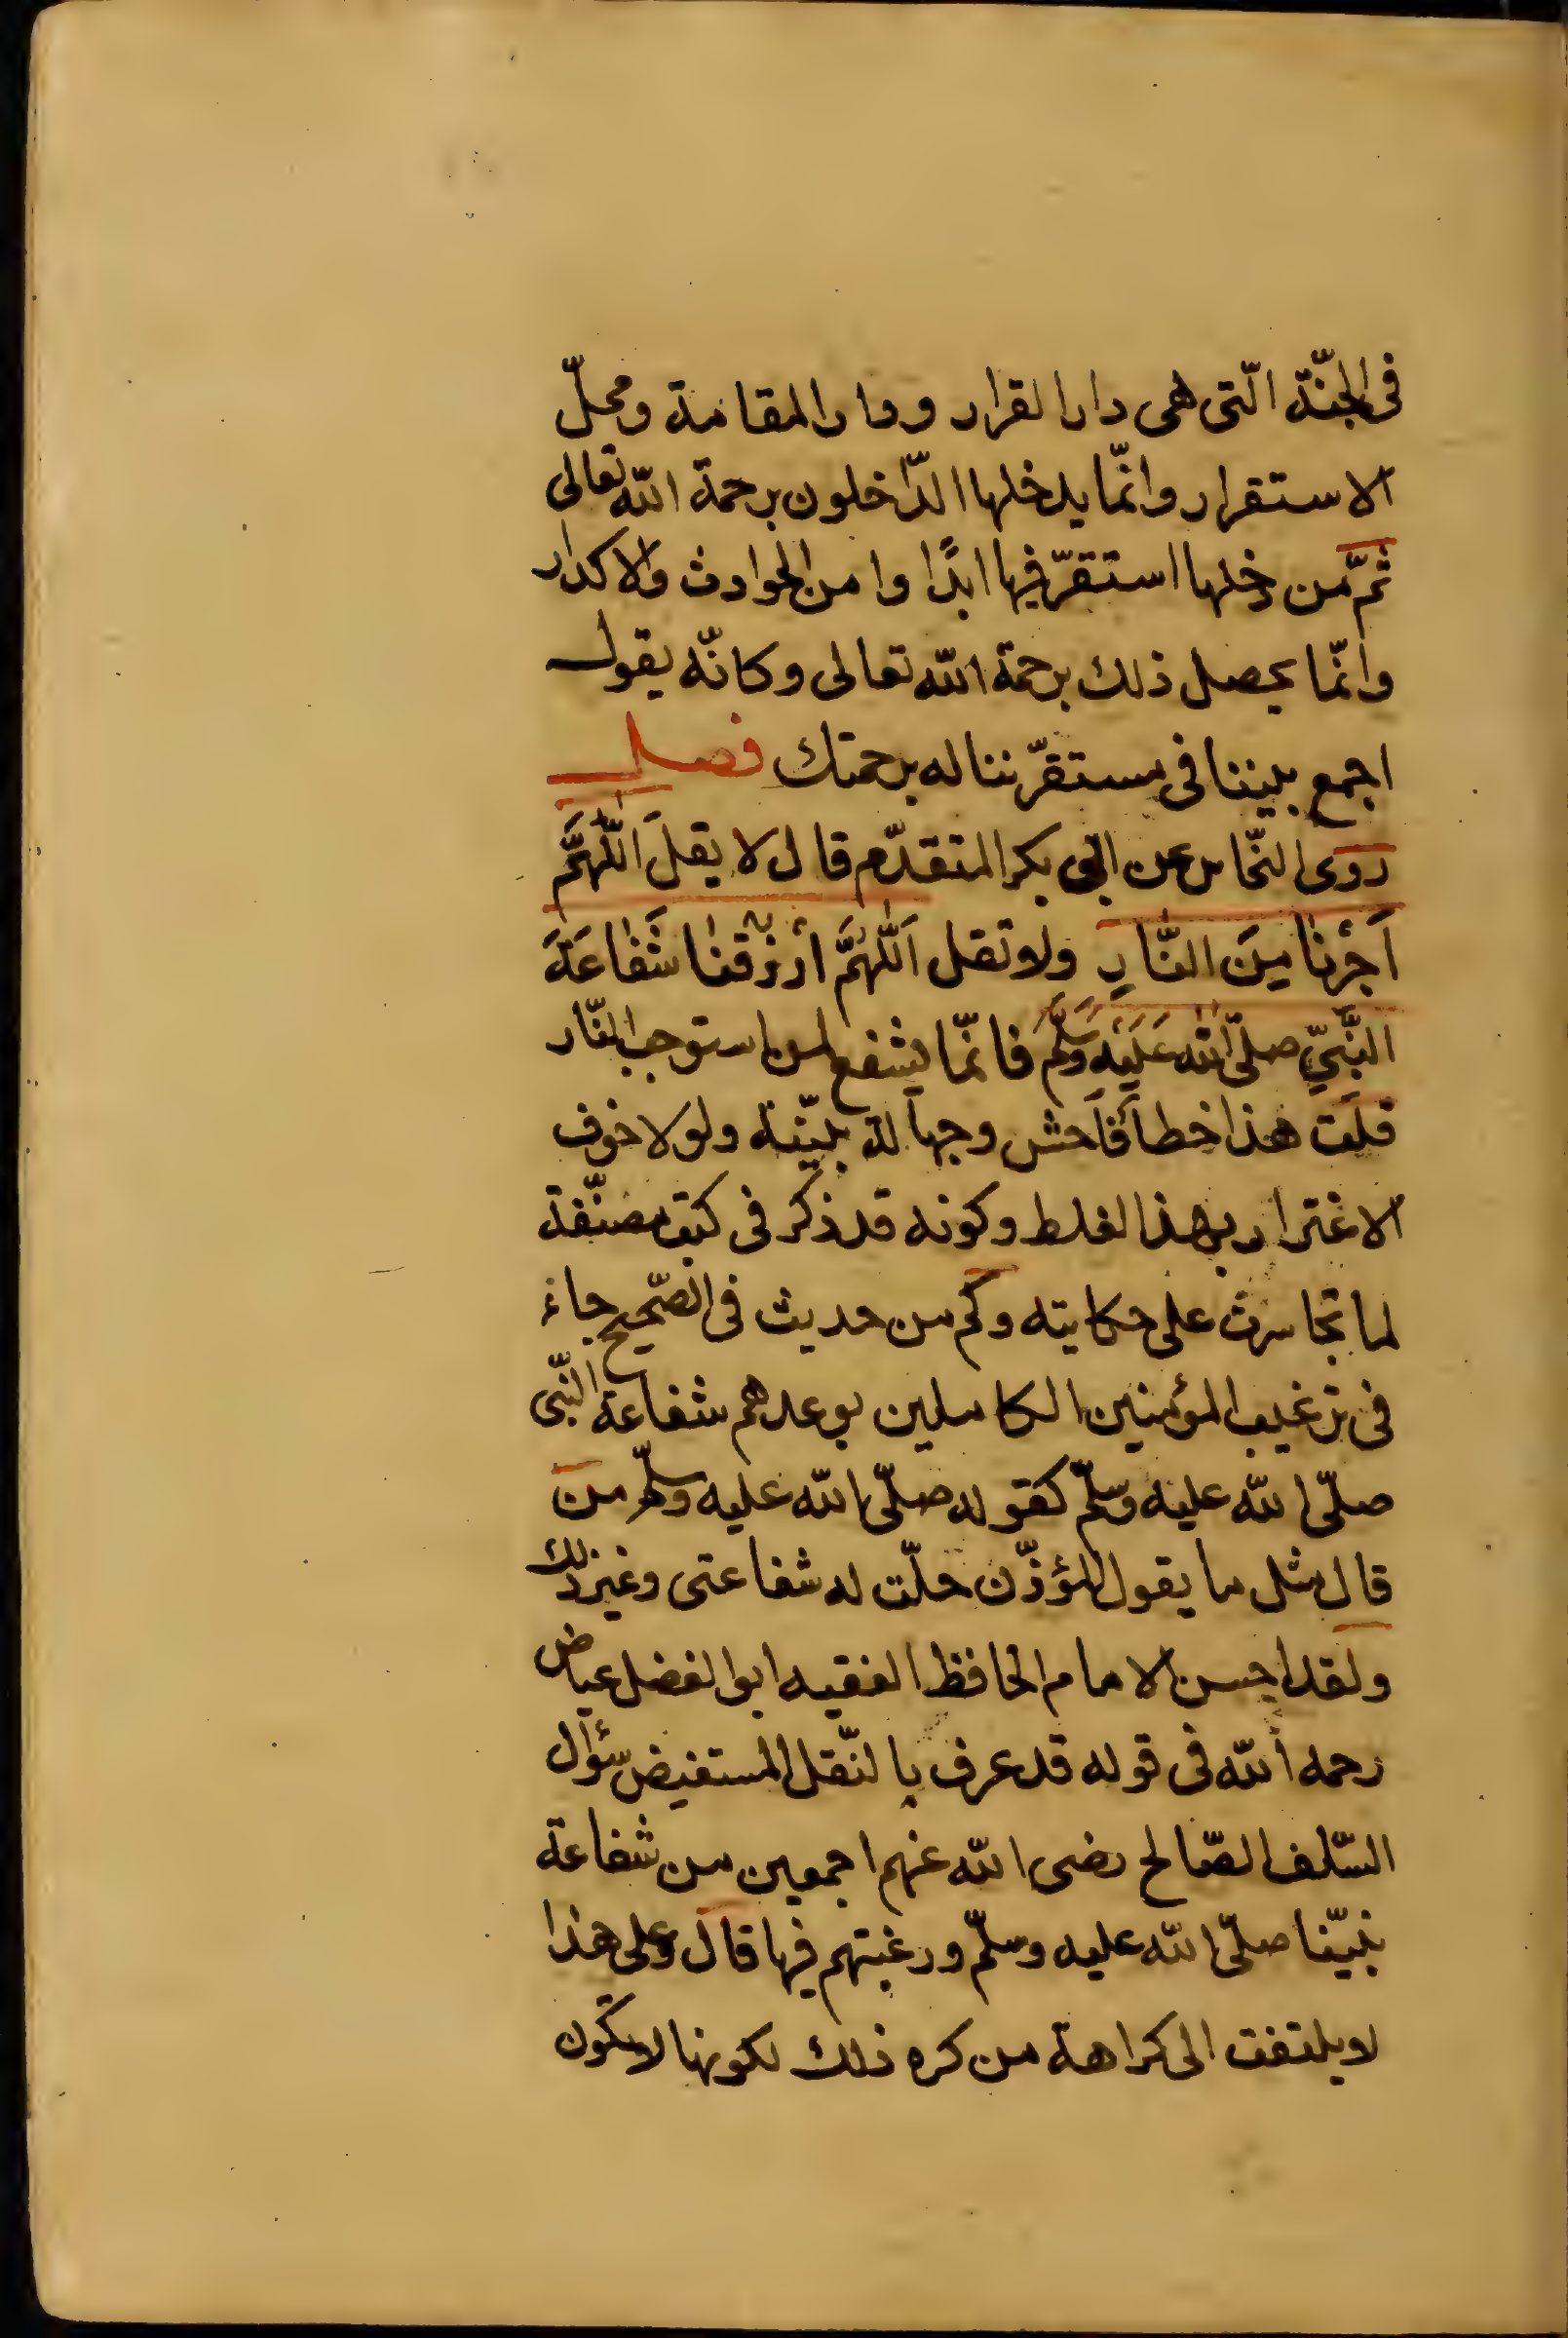 فى الجنّة الّتى هى دار القرار ودار المقامة ومحلّ
الاستقرار وانّما يدخلها الدّاخلون برحمة الله تعالى
ثمّ من دخلها استقرّ فيها ابدًا وامن الحوادث والاكدار
وانّما يحصل ذلك برحمة الله تعالى وكانّه يقول
اجمع بيننا فى مستقرّ نناله برحمتك فصل
روى النحّاس عن ابى بكر المتقدّم قال لا يقل اَللّٰهُمَّ
اَجِرْنَا مِنَ النَّارِ ولا تقل اَللّٰهُمَّ ارْزُقْنَا شَفَاعَةَ
النَّبِيِّ صلّى الله عَلَيْهِ وَسَلَّمَ فانّما يشفع لمن استوجب النّار
قلت هذا خطأ فاحش وجهالة بيّنة ولولا خوف
الاغترار بهذا الغلط وكونه قد ذكر فى كتب مصنّفة
لما تجاسرت على حكايته وكم من حديث فى الصّحيح جاء
فى ترغيب المؤمنين الكاملين بوعدهم شفاعة النّبى
صلّى الله عليه وسلّم كقوله صلّى الله عليه وسلّم من
قال مثل ما يقول المؤذّن حلّت له شفاعتى وغير ذلك
ولقد احسن الامام الحافظ الفقيه ابو الفضل عياض
رحمه الله فى قوله قد عرف بالنّقل المستفيض سؤال
السّلف الصّالح رضى الله عنهم اجمعين من شفاعة
نبيّنا صلّى الله عليه وسلّم ورغبتهم فيها قال وعلى هذا
لا يلتفت الى كراهة من كره ذلك لكونها لا يكون